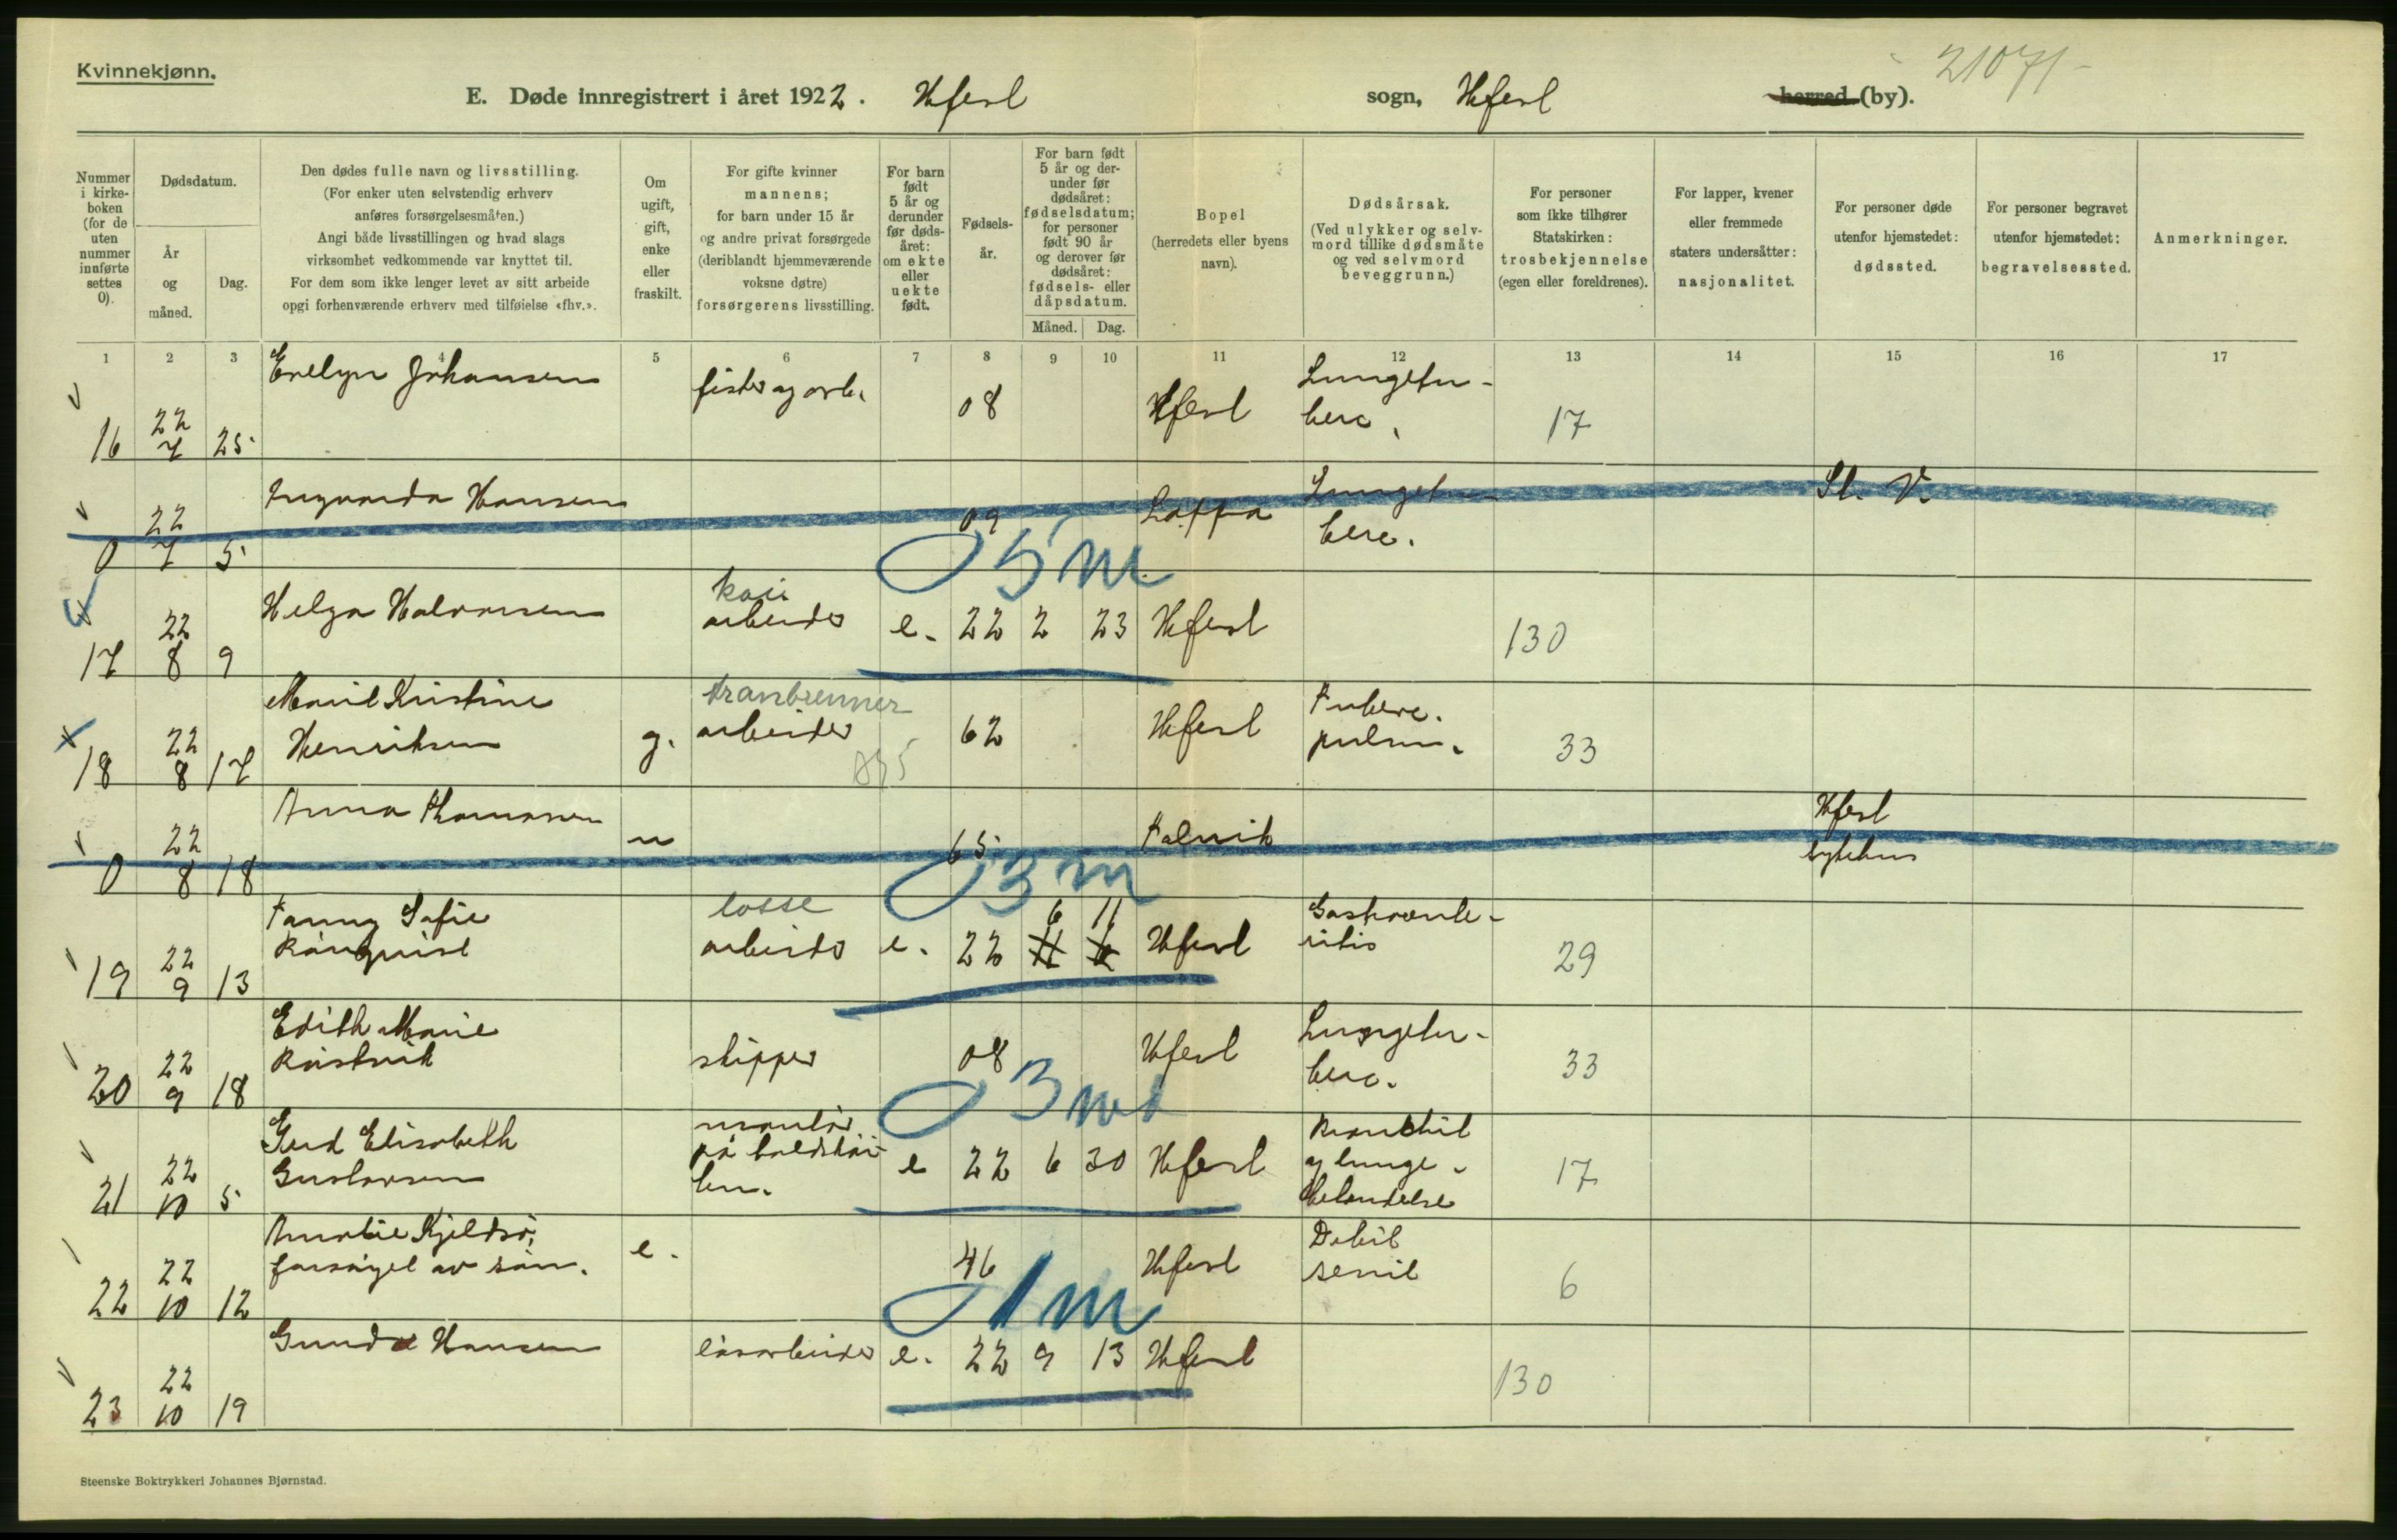 Kvinnekjønn.
21071-
E. Døde innregistrert i året 1922. Hfest sogn, Hfest herred (by).
Nummer i kirkeboken (for de uten nummer innførte settes 0).
Dødsdatum.
År og måned.
Dag.
Den dødes fulle navn og livsstilling.
(For enker uten selvstendig erhverv
anføres forsørgelsesmåten.)
Angi både livsstillingen og hvad slags
virksomhet vedkommende var knyttet til.
For dem som ikke lenger levet av sitt arbeide
opgi forhenværende erhverv med tilføielse «fhv.».
Om ugift, gift, enke eller fraskilt.
For gifte kvinner
mannens;
for barn under 15 år
og andre privat forsørgede
(deriblandt hjemmeværende
voksne døtre)
forsørgerens livsstilling.
For barn født 5 år og derunder før dødsåret: om ekte eller uekte født.
Fødselsår.
For barn født 5 år og derunder før dødsåret: fødselsdatum; for personer født 90 år og derover før dødsåret: fødsels- eller dåpsdatum.
Måned. Dag.
Bopel
(herredets eller byens
navn).
Dødsårsak.
(Ved ulykker og selvmord tillike dødsmåte
og ved selvmord
beveggrunn.)
For personer
som ikke tilhører
Statskirken:
trosbekjennelse
(egen eller foreldrenes).
For lapper, kvener
eller fremmede
staters undersåtter:
nasjonalitet.
For personer døde
utenfor hjemstedet:
dødssted.
For personer begravet
utenfor hjemstedet:
begravelsessted.
Anmerkninger.
1 2 3 4 5 6 7 8 9 10 11 12 13 14 15 16 17
16 22 7 25 Evelyn Johansen fisker og arb. 08 Hfest Lungetuberc. 17
0 22 7 5 Ingvarda Hansen 09 Loppa Lungetuberc. St. V.
5 m
17 22 8 9 Helga Halvorsen kai arbeider e. 22 2 23 Hfest 130
18 22 8 17 Marie Kristine Henriksen g. tranbrenner arbeider 62 Hfest Tuberc. pulm. 33
0 22 8 18 Anna Thomasen u 65 Talvik Hfest sykehus
3 m
19 22 9 13 Fanny Sofie Rönquist losse arbeider e. 22 6 11 Hfest Gastroenteritis 29
20 22 9 18 Edith Marie skipper 08 Hfest Lungetuberc. 33
3 m
21 22 10 5 Gerd Elisabeth Gustavsen montør e 22 6 30 Hfest Bronchit og lungebetendelse 17
22 22 10 12 Amalie Kjeldsø, forsørget av sønn. e. 46 Hfest Debil senil 6
1 m
23 22 10 19 Gunda Hansen løsarbeider e. 22 9 13 Hfest 130
Steenske Boktrykkeri Johannes Bjørnstad.